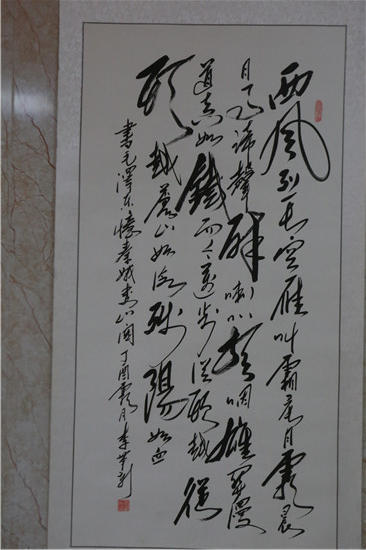 西风烈长空雁叫霜晨月霜晨
月马蹄聲碎喇叭声咽雄关漫
道真如鐵而今迈步从头越從
头越蒼山如海残陽如血
書毛澤东憶秦娥娄山关丁酉霜月李